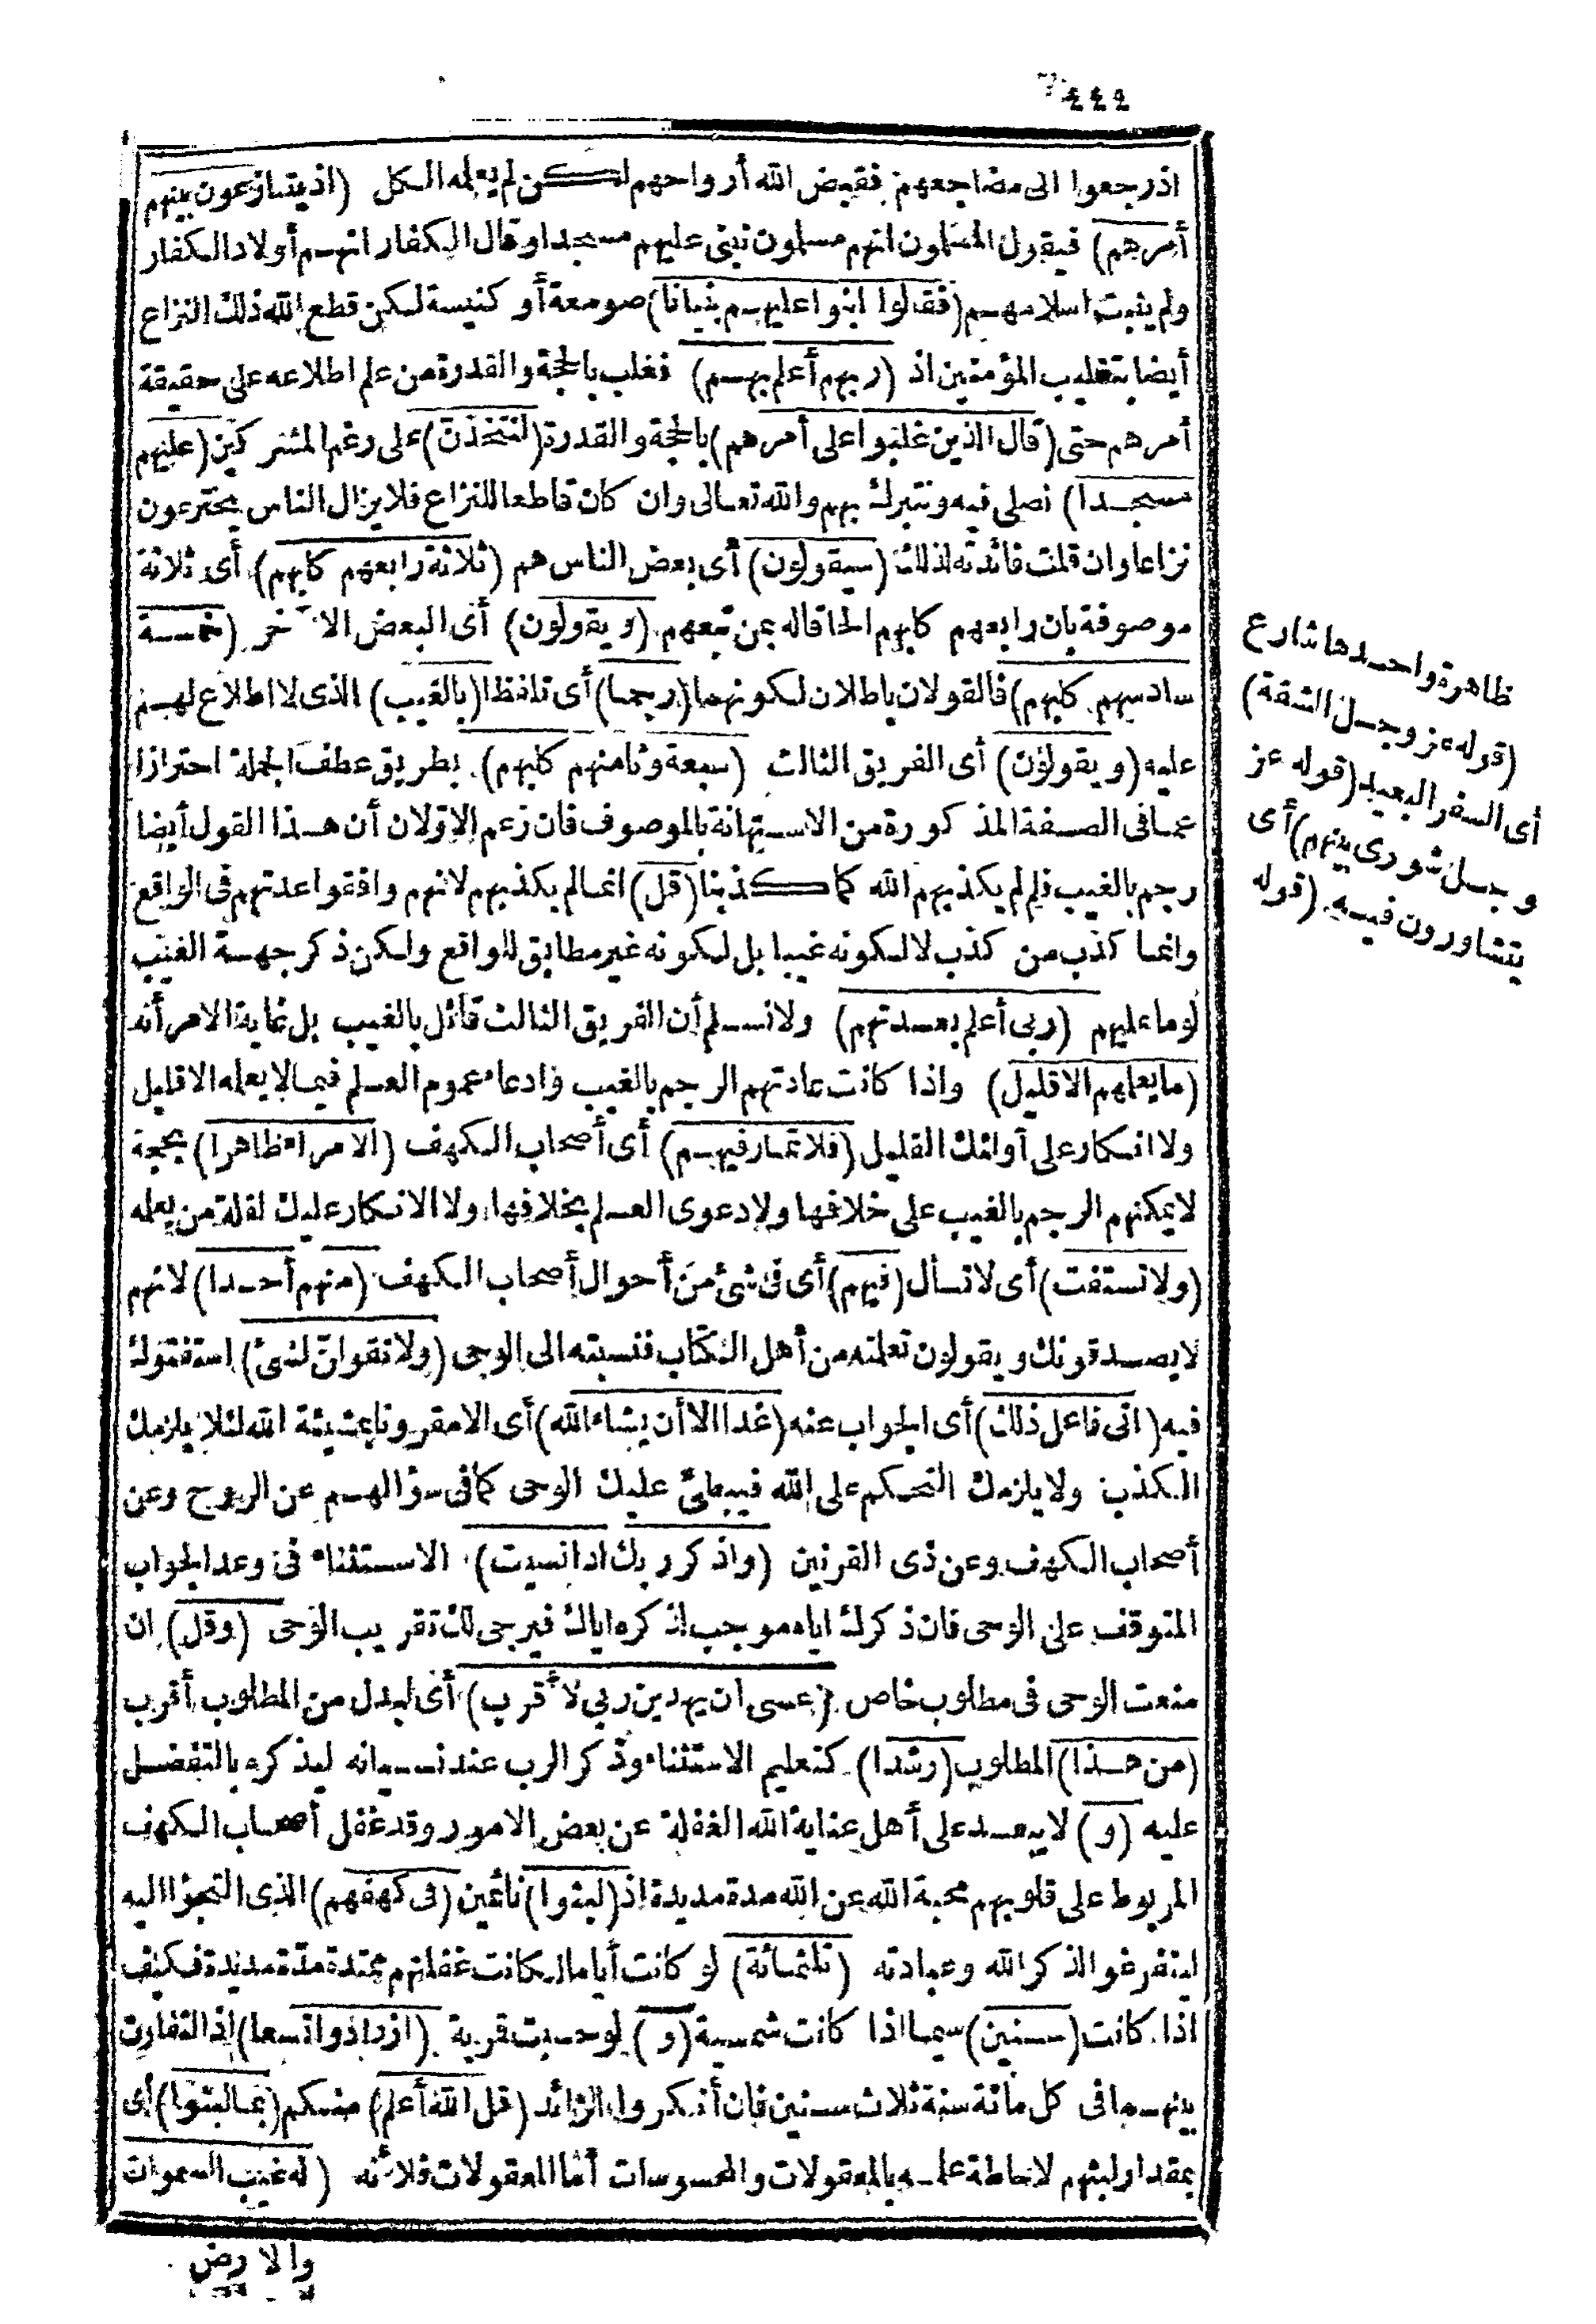 ٤٤٢
اذ رجعوا الى مضاجعهم فقبض الله أرواحهم لكن لم يعلمه الكل (اذ يتنازعون بينهم
أمرهم) فيقول المسلمون انهم مسلمون نبنى عليهم مسجدا وقال الكفار انهم أولاد الكفار
ولم يثبت اسلامهم (فقالوا ابنوا عليهم بنيانا) صومعة أو كنيسة لكن قطع الله ذلك النزاع
أيضا بتغليب المؤمنين اذ (ربهم أعلم بهم) فغلب بالحجة والقدرة من علم اطلاعه على حقيقة
أمرهم حتى (قال الذين غلبوا على أمرهم) بالحجة والقدرة (لنتخذن) على رغم المشركين (عليهم
مسجدا) نصلى فيه ونتبرك بهم والله تعالى وان كان قاطعا للنزاع فلا يزال الناس يخترعون
نزاعا وان قلت فائدته لذلك (سيقولون) أى بعض الناس هم (ثلاثة رابعهم كلبهم) أى ثلاثة
موصوفة بان رابعهم كلبهم الحاقا له بمن تبعهم (ويقولون) أى البعض الآخر (خمسة
سادسهم كلبهم) فالقولان باطلان لكونهما (رجما) أى تلفظا (بالغيب) الذى لا اطلاع لهم
عليه (ويقولون) أى الفريق الثالث (سبعة وثامنهم كلبهم) بطريق عطف الجملة احترازا
عما فى الصفة المذكورة من الاستهانة بالموصوف فان زعم الاولان أن هذا القول أيضا
رجم بالغيب فلم لم يكذبهم الله كما كذبنا (قل) انما لم يكذبهم لانهم وافقوا عدتهم فى الواقع
وانما كذب من كذب لا لكونه غيبا بل لكونه غير مطابق للواقع ولكن ذكر جهة الغيب
لوما عليهم (ربى أعلم بعدتهم) ولا نسلم أن الفريق الثالث قائل بالغيب بل غاية الامر أنه
(ما يعلمهم الا قليل) واذا كانت عادتهم الرجم بالغيب وادعاء عموم العلم فيما لا يعلمه الا قليل
ولا انكار على أولئك القليل (فلا تمار فيهم) أى أصحاب الكهف (الا مراء ظاهرا) بحجة
لا يمكنهم الرجم بالغيب على خلافها ولا دعوى العلم بخلافها ولا الانكار عليك لقلة من يعلمه
(ولا تستفت) أى لا تسأل (فيهم) أى فى شئ من أحوال أصحاب الكهف (منهم أحدا) لانهم
لا يصدقونك ويقولون تعلمته من أهل الكتاب فنسبته الى الوحى (ولا تقولن لشئ) استفتوك
فيه (انى فاعل ذلك) أى الجواب عنه (غدا الا أن يشاء الله) أى الا مقرونا بمشيئة الله لئلا يلزمك
الكذب ولا يلزمك التحكم على الله فيبطئ عليك الوحى كما فى سؤالهم عن الروح وعن
أصحاب الكهف وعن ذى القرنين (واذكر ربك اذا نسيت) الاستثناء فى وعد الجواب
المتوقف على الوحى فان ذكرك اياه موجب لذكره اياك فيرجى لك تقريب الوحى (وقل) ان
منعت الوحى فى مطلوب خاص (عسى أن يهدين ربى لأقرب) أى لبدل من المطلوب أقرب
(من هذا) المطلوب (رشدا) كتعليم الاستثناء وذكر الرب عند نسيانه ليذكره بالتفضل
عليه (و) لا يبعد على أهل عناية الله الغفلة عن بعض الامور وقد غفل أصحاب الكهف
المربوط على قلوبهم محبة الله عن الله مدة مديدة اذ (لبثوا) نائمين (فى كهفهم) الذى التجؤا اليه
ليتفرغوا لذكر الله وعبادته (ثلثمائة) لو كانت أياما لكانت غفلتهم ممتدة مدة مديدة فكيف
اذا كانت (سنين) سيما اذا كانت شمسية (و) لو حسبت قمرية (ازدادوا تسعا) اذ التفاوت
بينهما فى كل مائة سنة ثلاث سنين فان أنكروا الزائد (قل الله أعلم) منكم (بما لبثوا) أى
بمقدار لبثهم لاحاطة علمه بالمعقولات والمحسوسات أما المعقولات فلأنه (له غيب السموات
والارض
ظاهرة واحدها شارع
(قوله عز وجل الشقة)
أى السفر البعيد (قوله عز
وجل شورى بينهم) أى
يتشاورون فيه (قوله